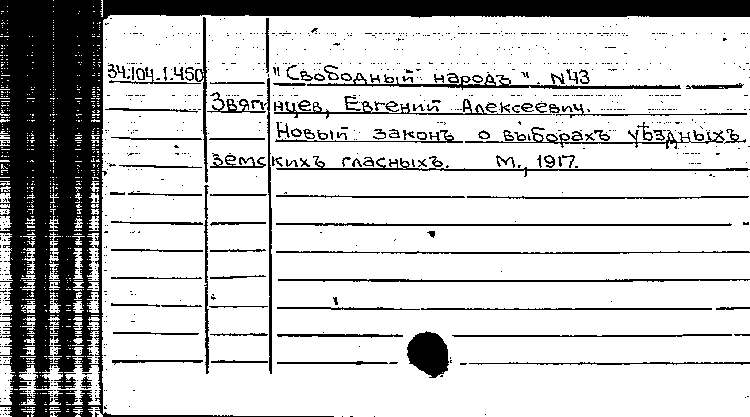 34.104.1.450 "Свободный народъ". N43
Звягинцев, Евгений Алексеевич.
Новый законъ о выборахъ уѣздныхъ
земскихъ гласныхъ. М., 1917.